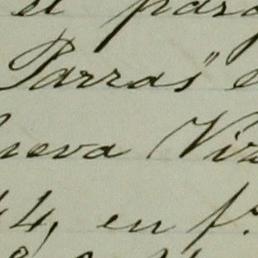 el para
Parras"
ueva Viz
44, en f.